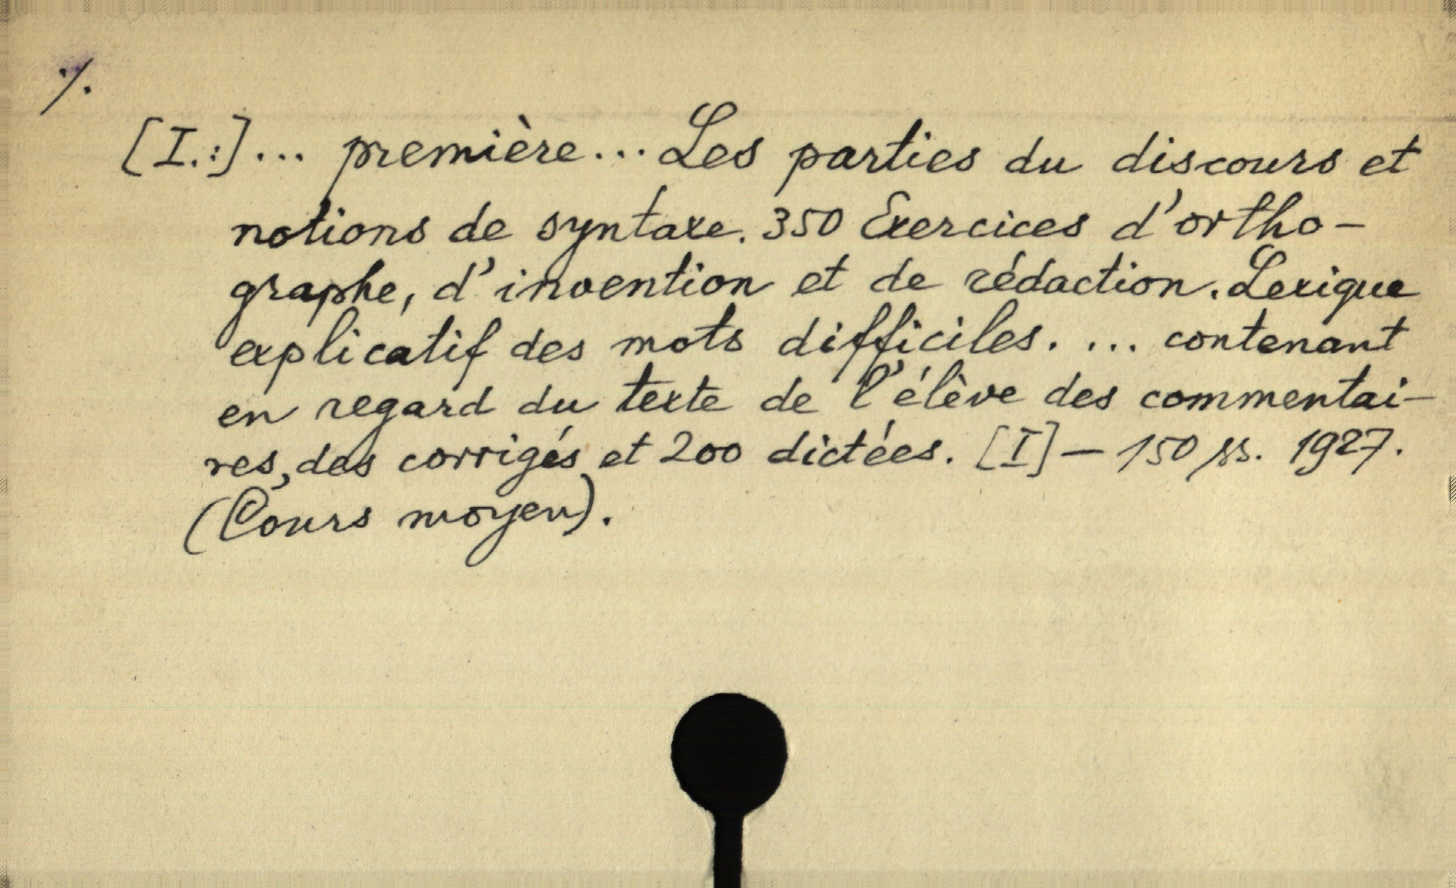 ·/.
[I.:]... première... Les parties du discours et
notions de syntaxe. 350 Exercices d'ortho-
graphe, d'invention et de rédaction. Lexique
explicatif des mots difficiles. ... contenant
en regard du texte de l'élève des commentai-
res, des corrigés et 200 dictées. [I] — 150 ss. 1927.
(Cours moyen).